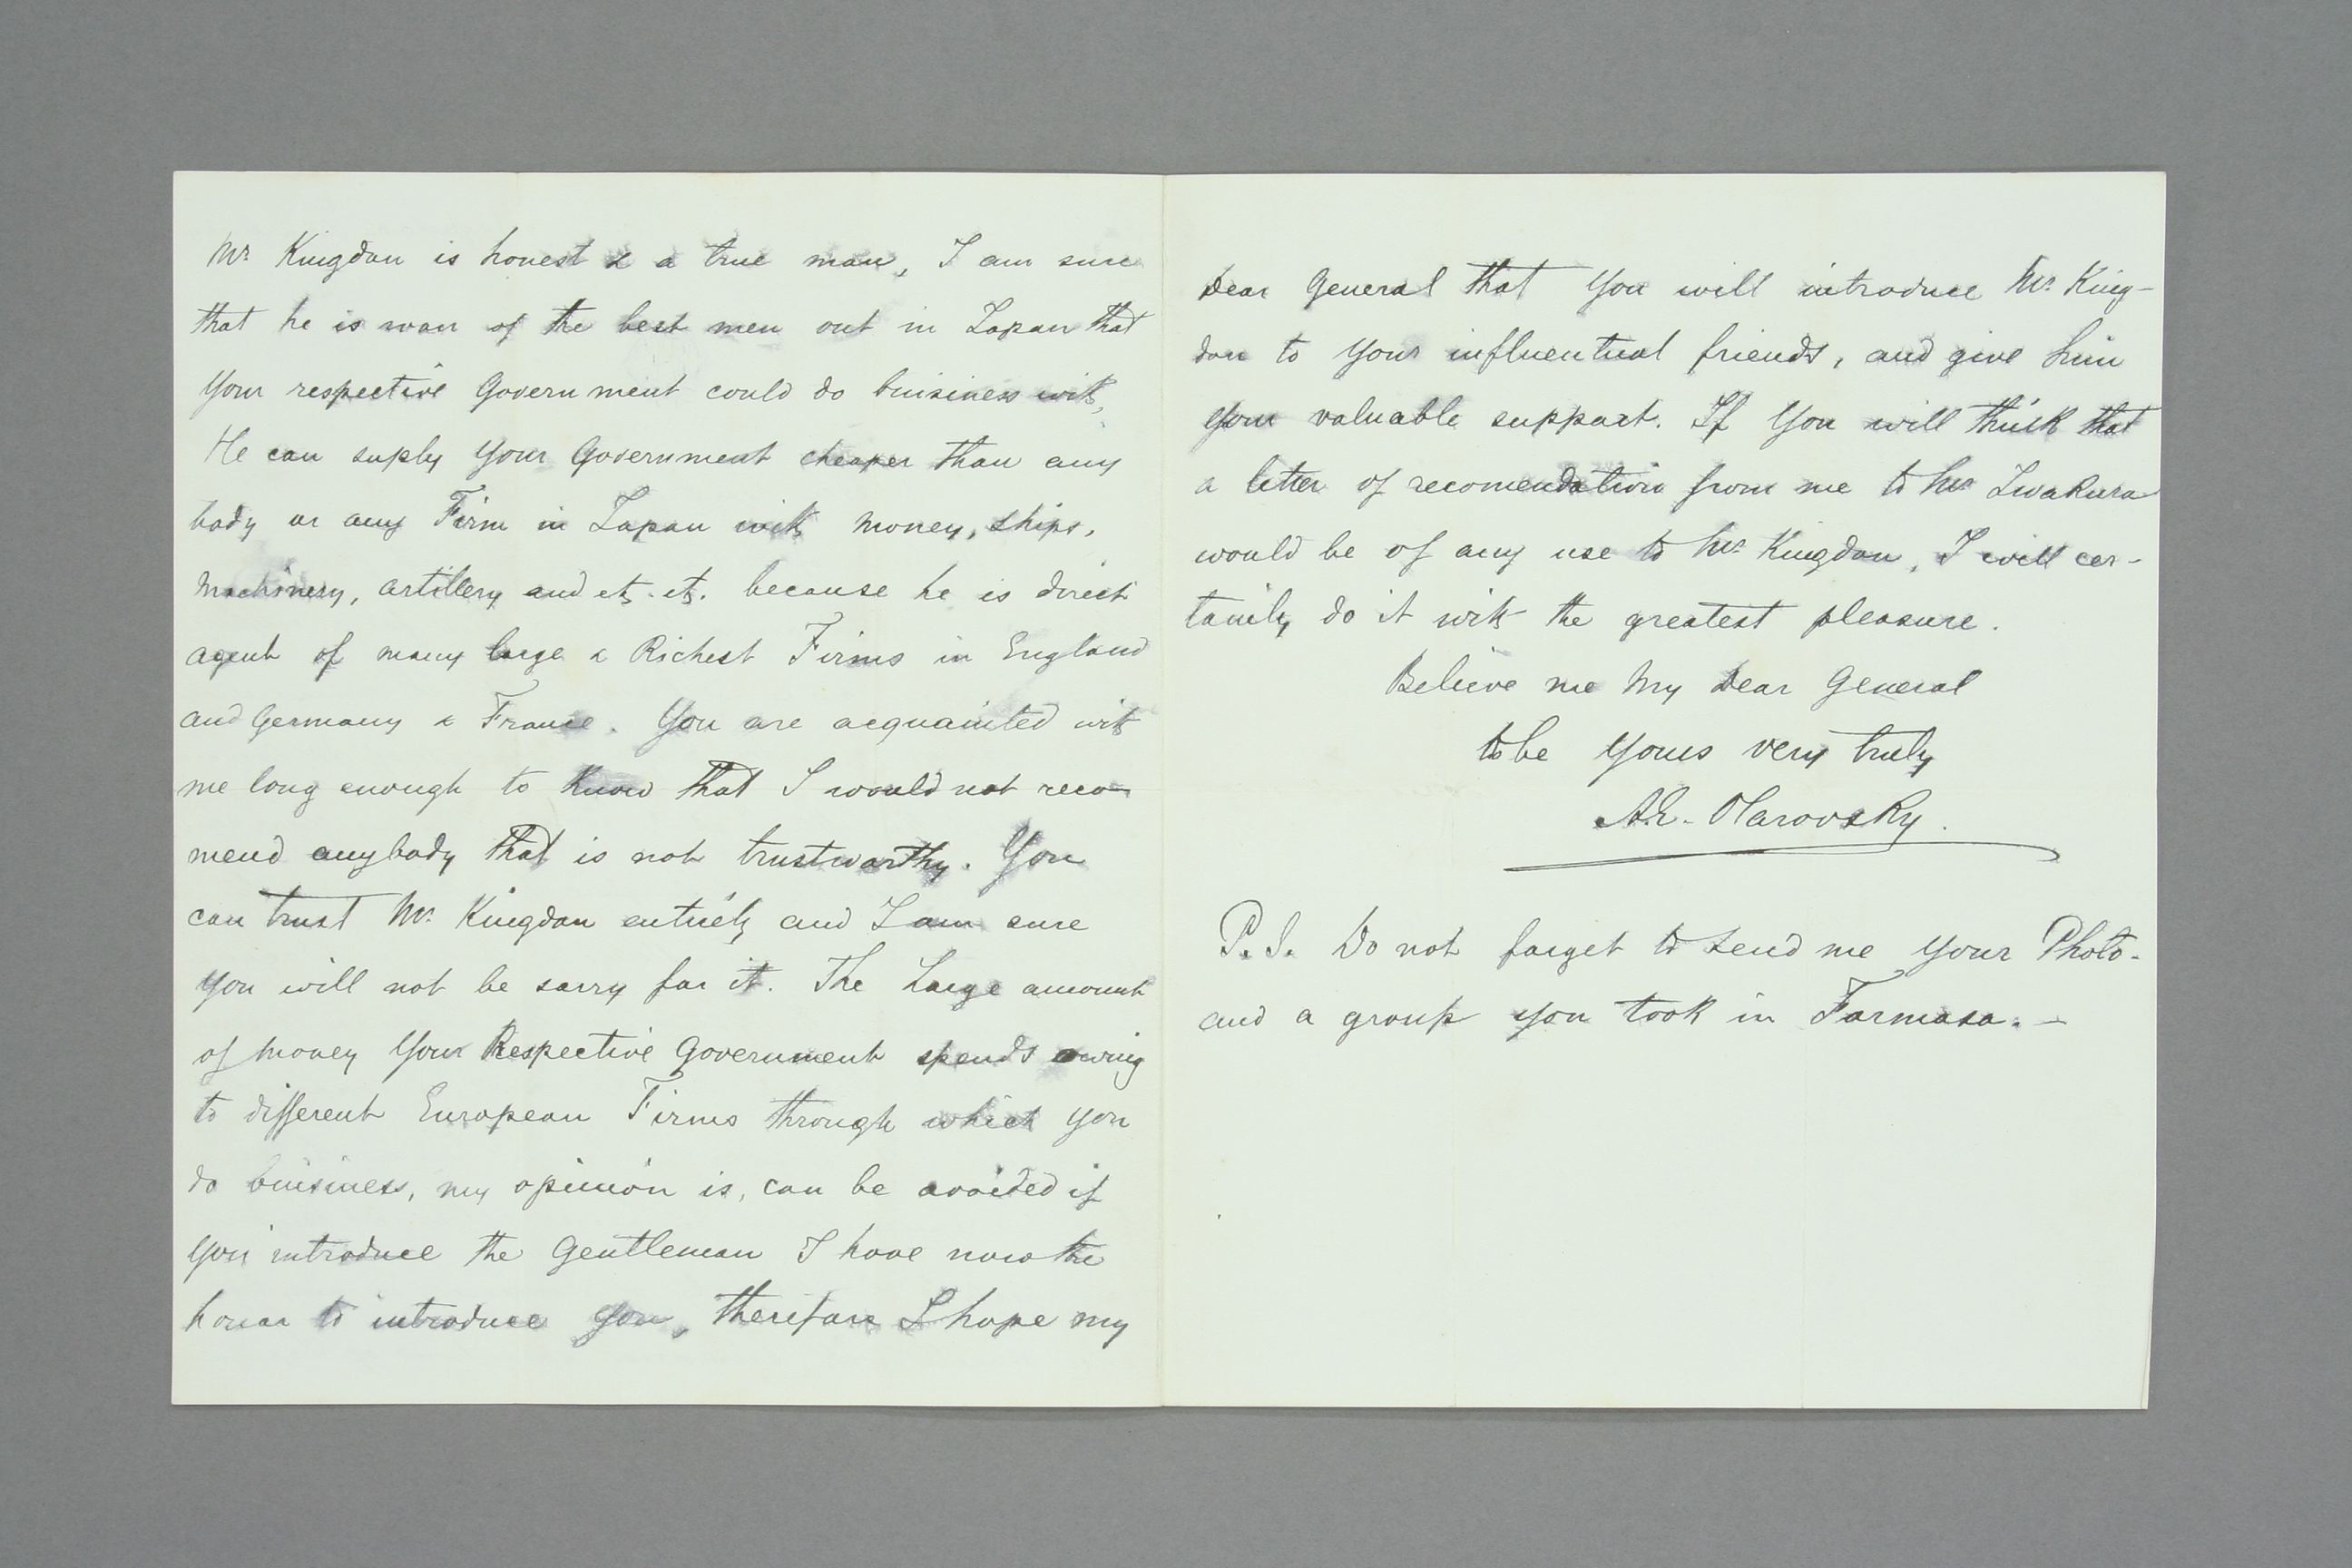 Mr. Kingdon is honest & a true man, I am sure
that he is won of the best men out in Japan that
Your respective Government could do buisiness with,
He can suply Your Government cheaper than any
body or any Firm in Japan with money, ships,
machinery, artillery and etz. etz. because he is direct
agent of many large & Richest Firms in England
and Germany & France. You are acquainted with
me long enough to know that I would not reco-
mend anybody that is not trustworthy. You
can trust Mr. Kingdon entirely and I am sure
you will not be sorry for it. The Large amount
of money Your Respective Government spends owing
to different European Firms through which you
do buisiness, my opinion is, can be avoided if
You introduce the Gentleman I have now the
honor to introduce you, therefore I hope my
Dear General that You will introduce Mr. King-
don to Your influentual friends, and give him
your valuable support. If You will think that
a letter of recomendation from me to Mr. Iwakura
would be of any use to Mr. Kingdon, I will cer-
tainly do it with the greatest pleasure.
Believe me My Dear General
to be Yours very truly
A.E. Olarovsky.
P.S. Do not forget to send me Your Photo-
and a group you took in Formosa. -